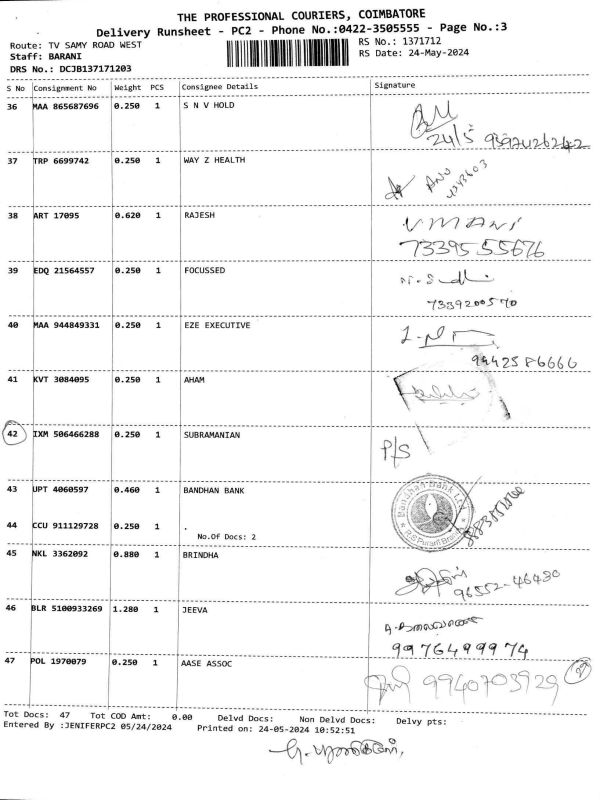 THE PROFESSIONAL COURIERS, COIMBATORE
Delivery Runsheet - PC2 - Phone No.:0422-3505555 - Page No.:3
Route: TV SAMY ROAD WEST RS No.: 1371712
Staff: BARANI RS Date: 24-May-2024
DRS No.: DCJB137171203
S No Consignment No Weight PCS Consignee Details Signature
36 MAA 865687696 0.250 1 S N V HOLD
24/5
37 TRP 6699742 0.250 1 WAY Z HEALTH
38 ART 17095 0.620 1 RAJESH VMANI
73395 55676
39 EDQ 21564557 0.250 1 FOCUSSED
7339200570
40 MAA 944849331 0.250 1 EZE EXECUTIVE
9442586666
41 KVT 3084095 0.250 1 AHAM
42 IXM 506466288 0.250 1 SUBRAMANIAN
P/S
43 UPT 4060597 0.460 1 BANDHAN BANK
Bandhan Bank Ltd
44 CCU 911129728 0.250 1 .
No.Of Docs: 2
45 NKL 3362092 0.880 1 BRINDHA
96552-46480
46 BLR 5100933269 1.280 1 JEEVA
9976499974
47 POL 1970079 0.250 1 AASE ASSOC
9940703929
Tot Docs: 47 Tot COD Amt: 0.00 Delvd Docs: Non Delvd Docs: Delvy pts:
Entered By :JENIFERPC2 05/24/2024 Printed on: 24-05-2024 10:52:51